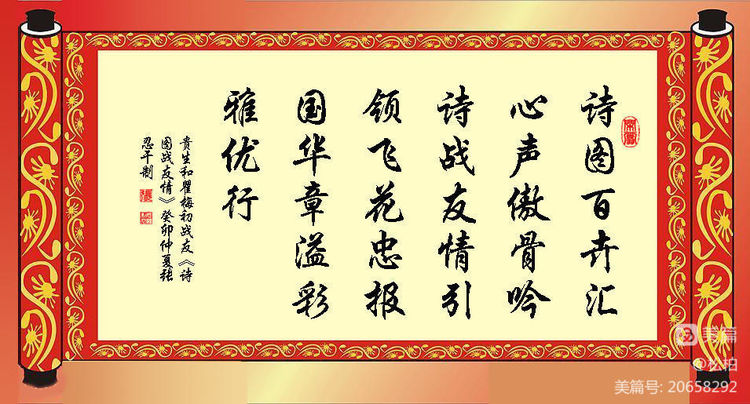 诗图百卉汇
心声傲骨吟
诗战友情引
领飞花忠报
国华章溢彩
雅优行
贵生和瞿梅初战友《诗
图战友情》癸卯仲夏张
忍干制
美篇
@松柏
美篇号: 20658292